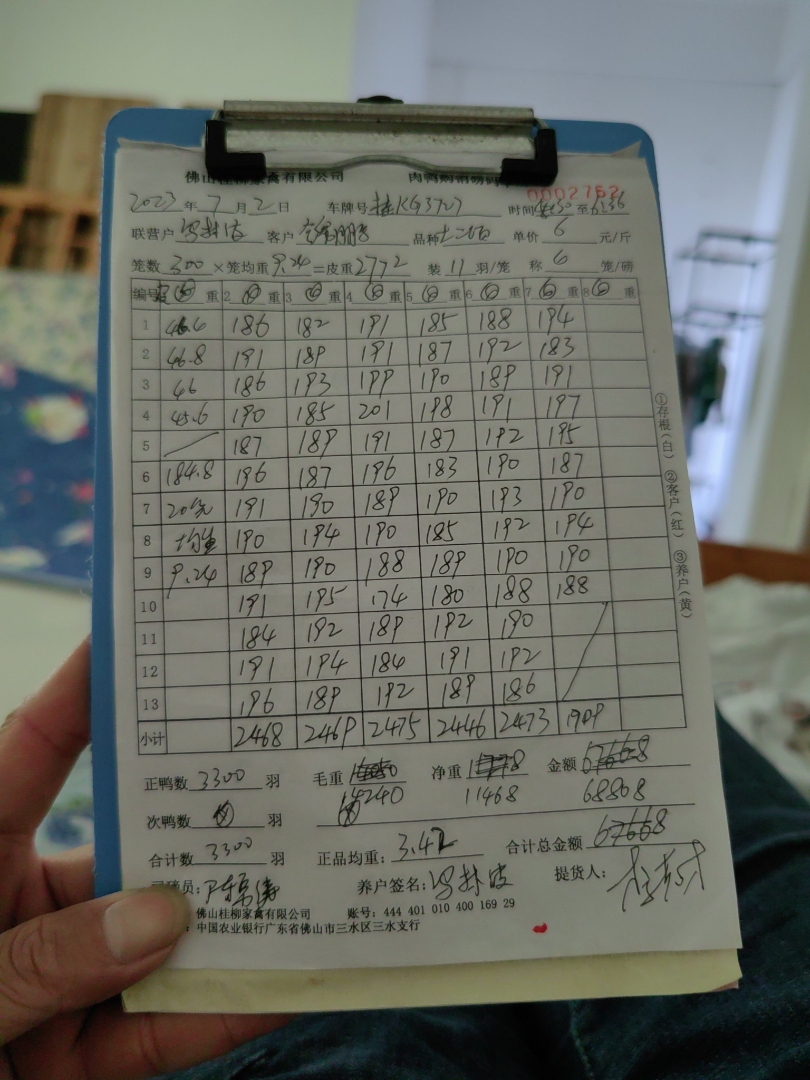 佛山桂柳家禽有限公司 肉鸭购销磅码单 0002752
2023 年 7 月 2 日 车牌号 桂KG3707 时间 至
联营户 客户 品种 单价 6 元/斤
笼数 300 ×笼均重 9.24 =皮重 2772 装 11 羽/笼 称 6 笼/磅
编号 重 2 重 3 重 4 重 5 重 6 重 7 重 8 重
1 46.6 186 182 191 185 188 194
2 46.8 191 189 191 187 192 183
3 46 186 193 199 190 189 191
4 45.6 190 185 201 198 191 197
5 187 189 191 187 192 195
6 184.8 196 187 196 183 190 187
7 20笼 191 190 189 190 193 190
8 均重 190 194 190 185 192 194
9 9.24 189 190 188 189 190 190
10 191 195 174 180 188 188
11 184 192 189 192 190
12 191 194 184 191 192
13 196 189 192 189 186
小计 2468 2469 2475 2446 2473 1909
正鸭数 3300 羽 毛重 净重 金额
14240 11468 68808
次鸭数 羽
合计数 3300 羽 正品均重: 3.42 合计总金额
司磅员: 养户签名: 提货人:
佛山桂柳家禽有限公司 账号: 444 401 010 400 169 29
中国农业银行广东省佛山市三水区三水支行
①存根(白) ②客户(红) ③养户(黄)